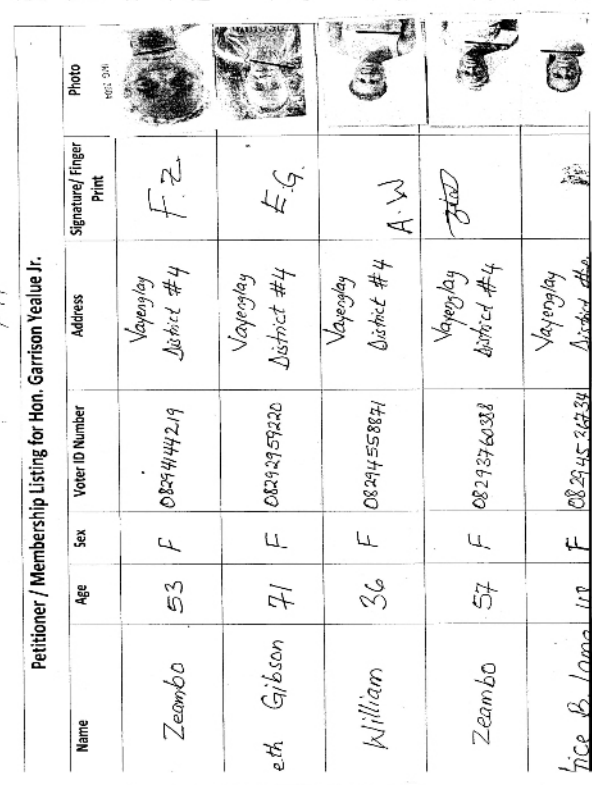 Petitioner / Membership Listing for Hon. Garrison Yealue Jr.
Name Age Sex Voter ID Number Address Signature/ Finger Print Photo
Zeambo 53 F 08294144219 Vayenglay District #4 F.Z
eth Gibson 71 F 08292959220 Vayenglay District #4 E.G.
William 36 F 08294558871 Vayenglay District #4 A.W
Zeambo 57 F 08293760388 Vayenglay District #4
B. F 08294526734 Vayenglay District